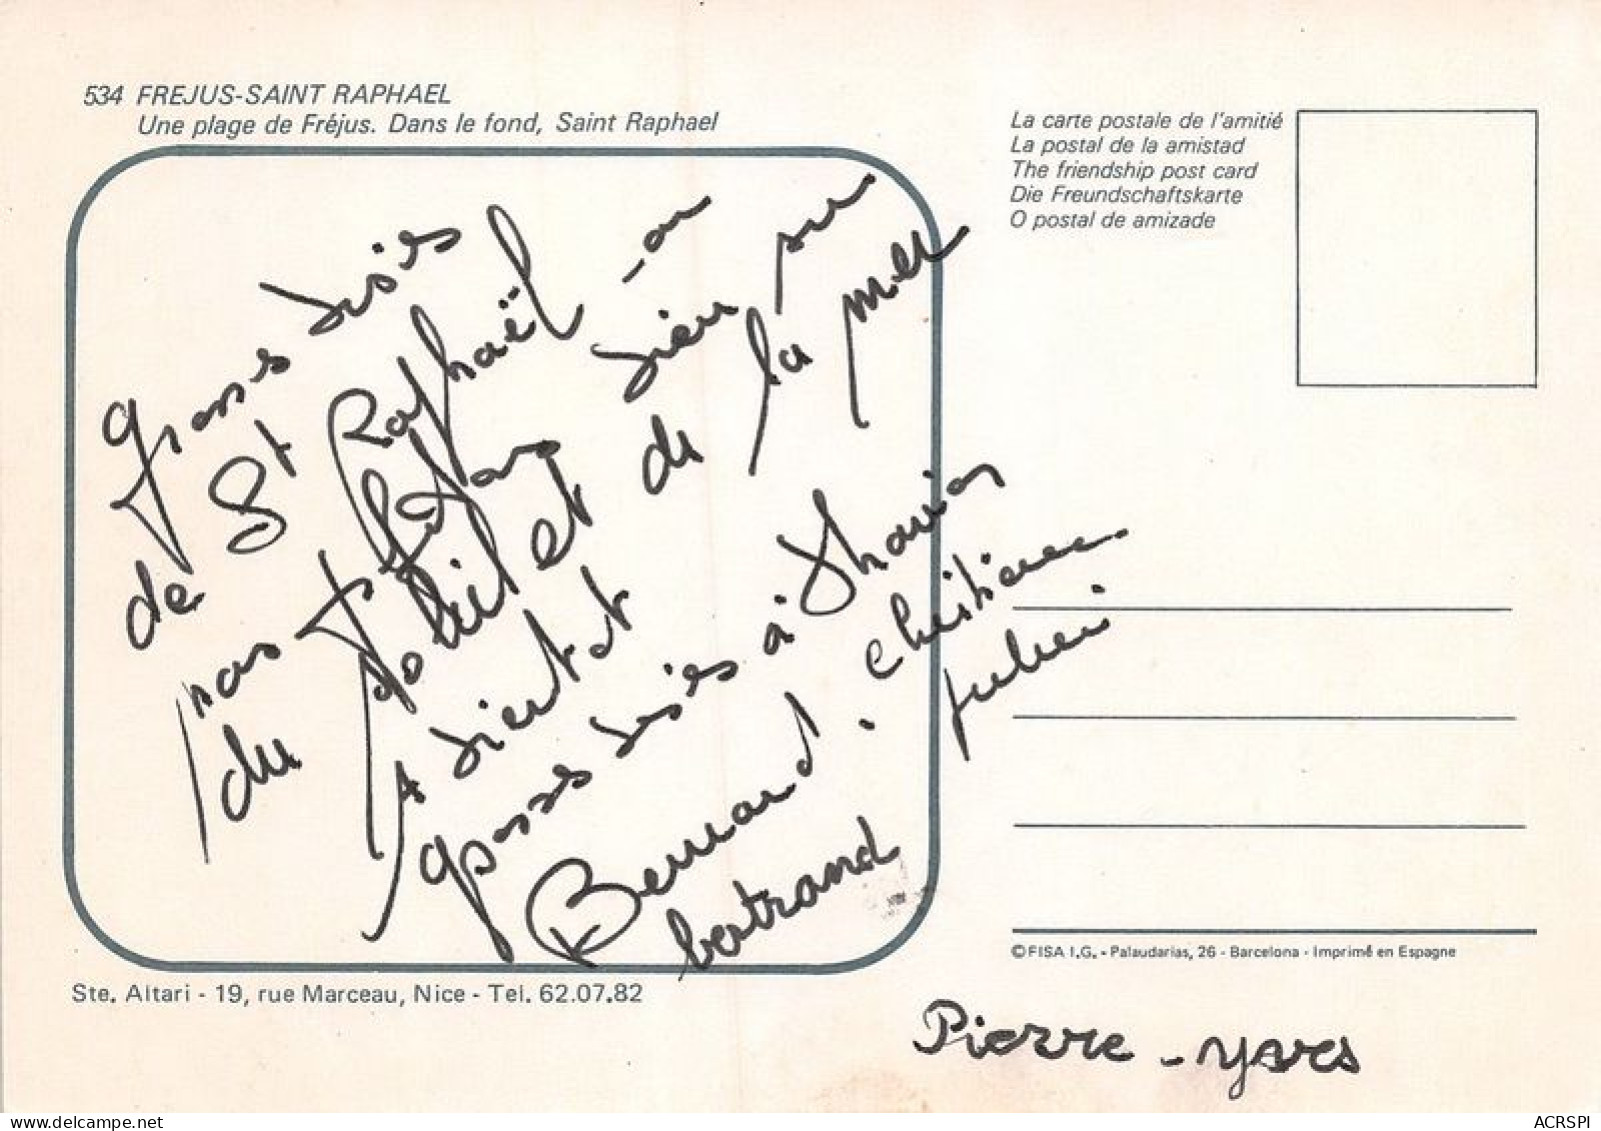 534 FREJUS-SAINT RAPHAEL
Une plage de Fréjus. Dans le fond, Saint Raphael
La carte postale de l'amitié
La postal de la amistad
The friendship post card
Die Freundschaftskarte
O postal de amizade
grosses bises
de St Raphaël - on
bien sur
du soleil et de la mer
A bientot
grosses bises à
Bernard. christiane
julien
bertrand
Pierre-yves
©FISA I.G. - Palaudarias, 26 - Barcelona - Imprimé en Espagne
Ste. Altari - 19, rue Marceau, Nice - Tel. 62.07.82
ACRSPI